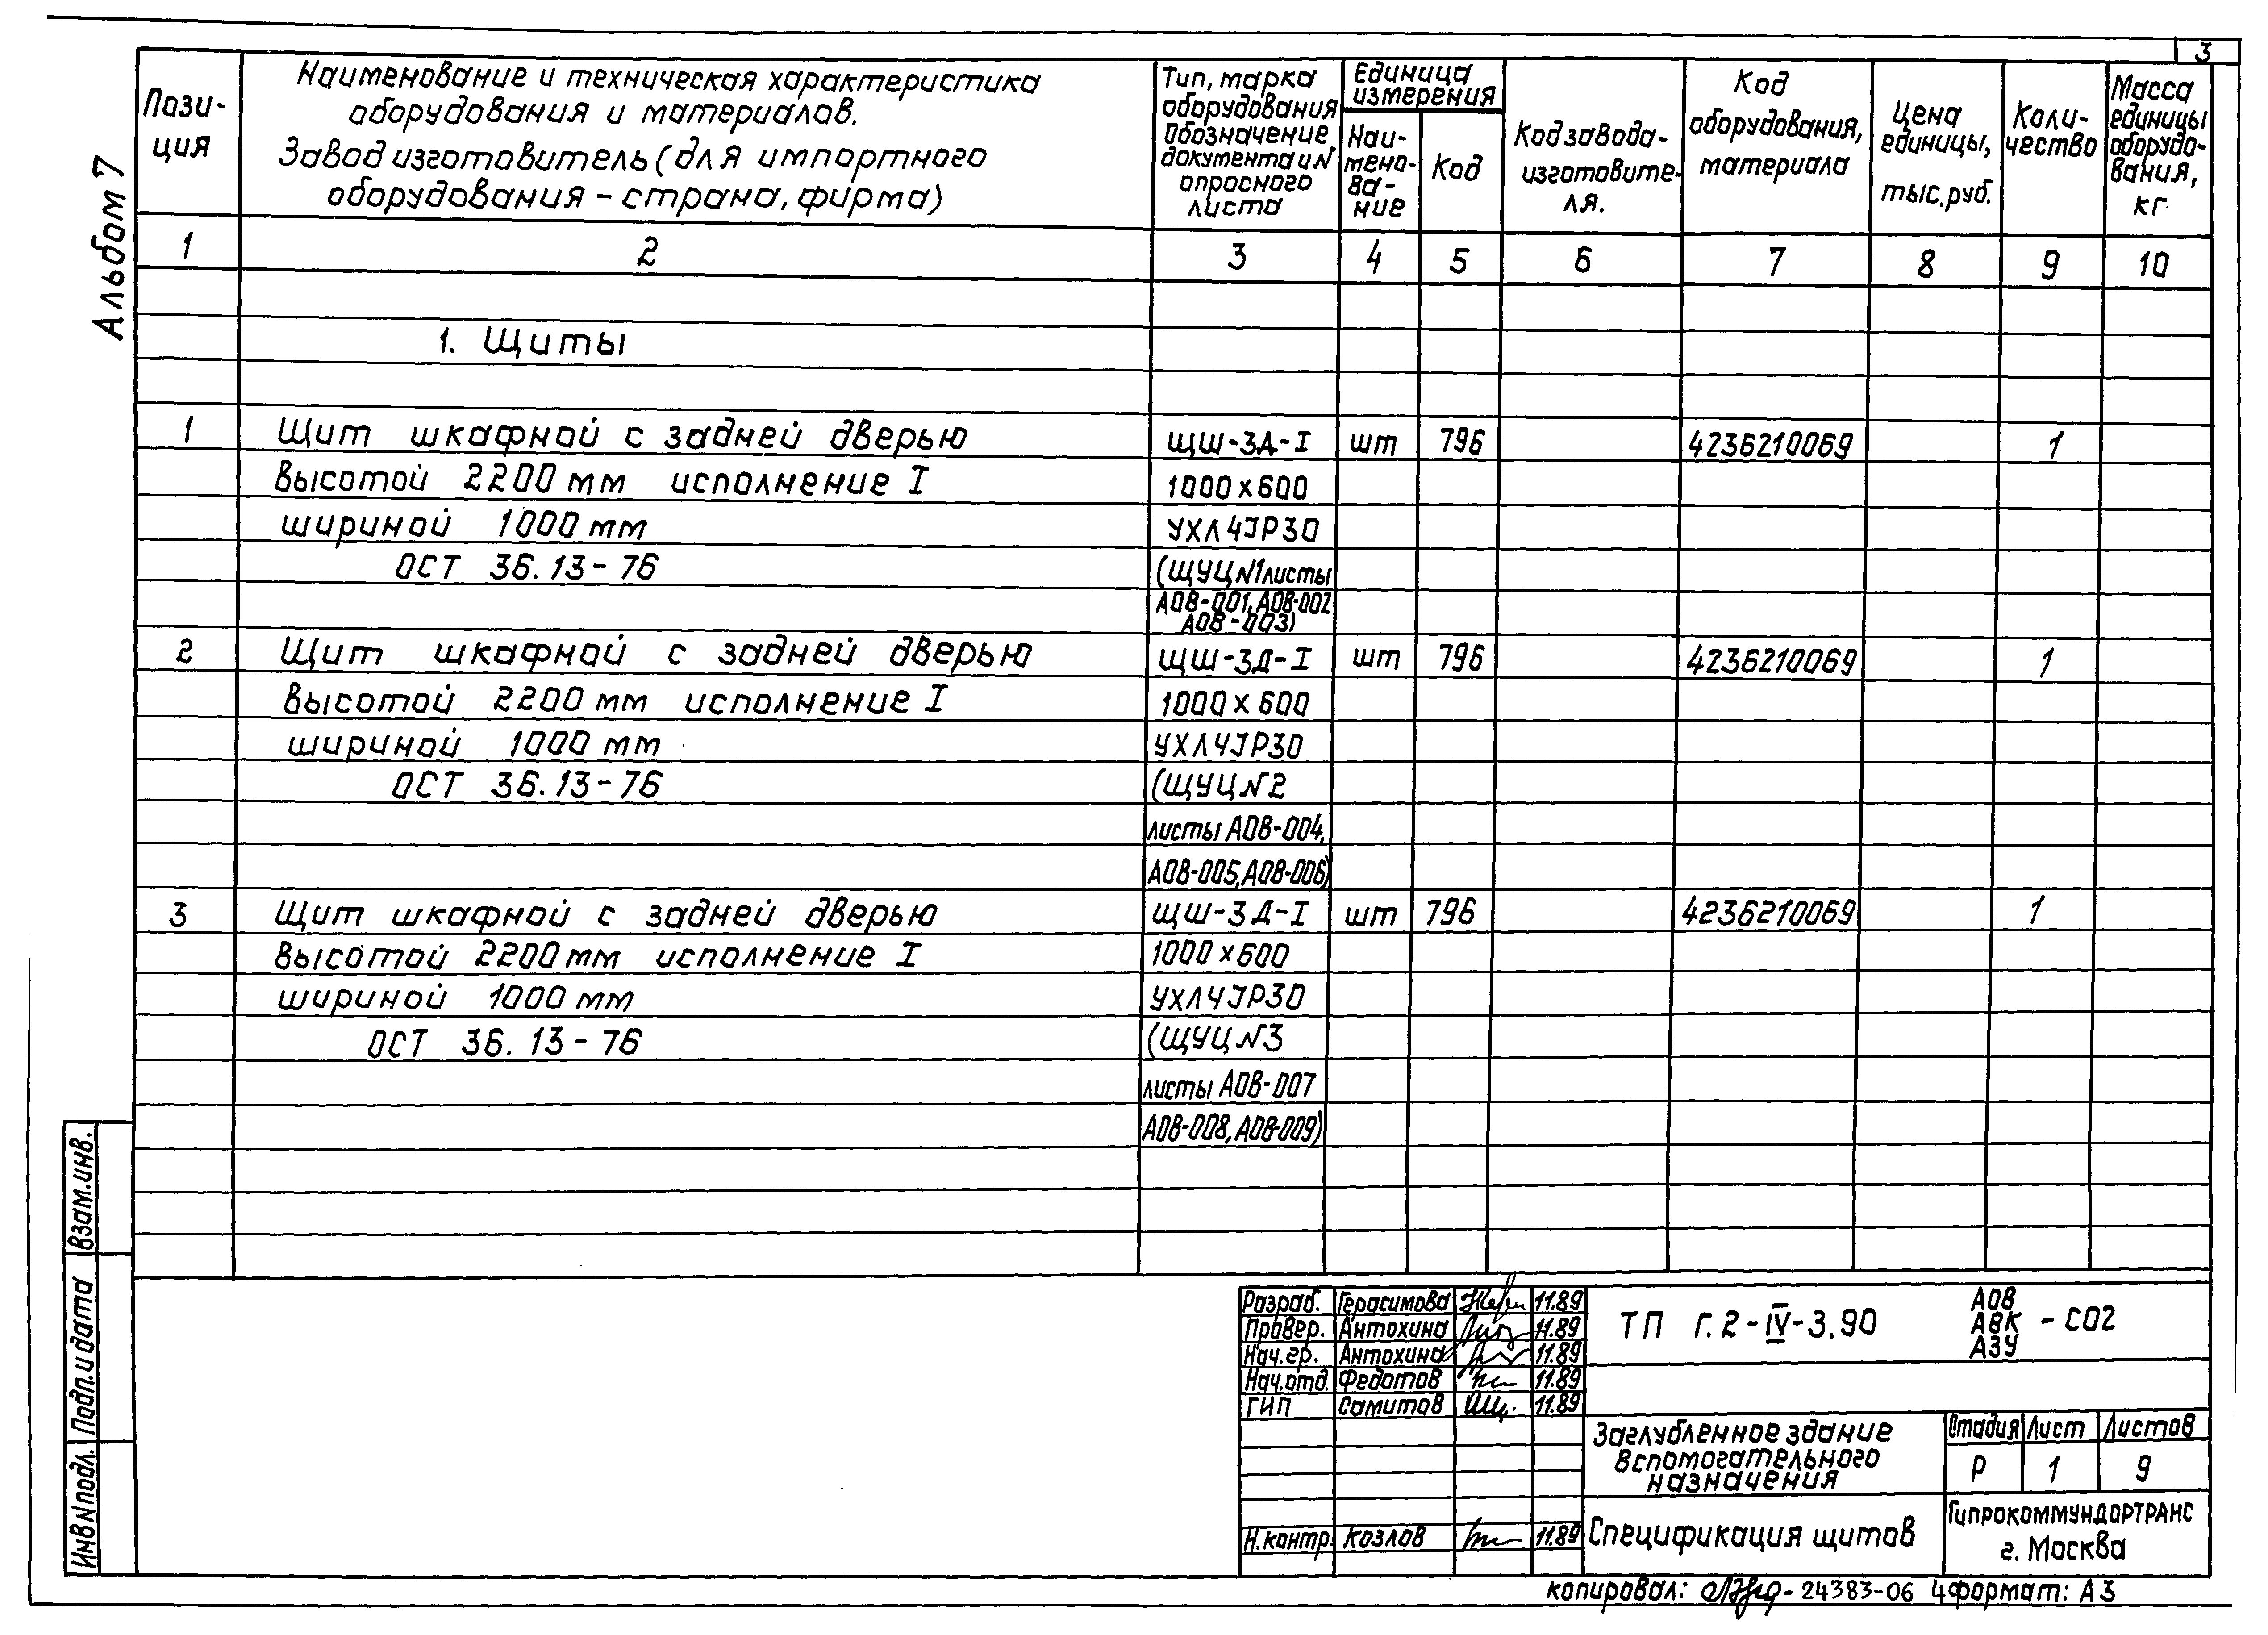 3
Альбом 7
Пози-
ция
Наименование и техническая характеристика
оборудования и материалов.
Завод изготовитель (для импортного
оборудования - страна, фирма)
Тип, марка
оборудования
Обозначение
документа и N
опросного
листа
Единица
измерения
Наи-
мено-
ва-
ние
Код
Код завода-
изготовите-
ля.
Код
оборудования,
материала
Цена
единицы,
тыс. руб.
Коли-
чество
Масса
единицы
оборудо-
вания,
кг
1 2 3 4 5 6 7 8 9 10
1. Щиты
1 Щит шкафной с задней дверью ЩШ-ЗД-I шт 796 4236210069 1
высотой 2200 мм исполнение I 1000х600
шириной 1000 мм УХЛ4IP30
ОСТ 36.13-76 (ЩУЦ N1 листы
АОВ-001, АОВ-002
АОВ-003)
2 Щит шкафной с задней дверью ЩШ-ЗД-I шт 796 4236210069 1
высотой 2200 мм исполнение I 1000х600
шириной 1000 мм УХЛ4IP30
ОСТ 36.13-76 (ЩУЦ N2
листы АОВ-004,
АОВ-005, АОВ-006)
3 Щит шкафной с задней дверью ЩШ-ЗД-I шт 796 4236210069 1
высотой 2200 мм исполнение I 1000х600
шириной 1000 мм УХЛ4IP30
ОСТ 36.13-76 (ЩУЦ N3
листы АОВ-007
АОВ-008, АОВ-009)
Взам. инв.
Подп. и дата
Инв N подл.
Разраб. Герасимова 11.89
Провер. Антохина 11.89
Нач. гр. Антохина 11.89
Нач. отд. Федотов 11.89
ГИП Самитов 11.89
Н. контр. Козлов 11.89
ТП Г.2-IV-3.90
АОВ
АВК - СО2
АЗУ
Заглубленное здание
вспомогательного
назначения
Стадия Лист Листов
Р 1 9
Спецификация щитов
Гипрокоммундортранс
г. Москва
копировал: - 24383-06 4 формат: А3